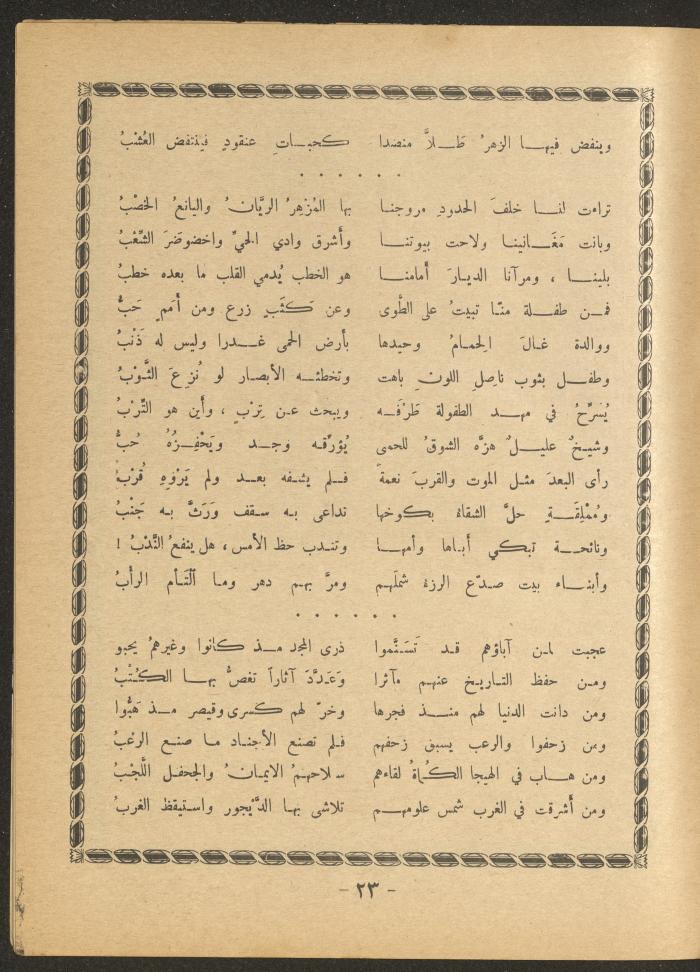 وينفض فيها الزهرُ طَلاًّ منضدا كحباتِ عنقودٍ فينتفض العُشْبُ
. . . . . .
تراءت لنا خلفَ الحدودِ مروجنا بها المُزْهِرُ الريَّانُ واليانعُ الخصْبُ
وبانت مَغَانينا ولاحت بيوتنا وأشرق وادي الحيِّ واخضوضَرَ الشَّعْبُ
بلينا ، ومرآنا الديارَ أمامنا هو الخطب يُدمي القلب ما بعده خطبُ
فمن طفلة منّا تبيتُ على الطَّوى وعن كَثَبٍ زرع ومن أَمَمٍ حَبُّ
ووالدة غالَ الحِمامُ وحيدها بأرض الحمى غدرا وليس له ذَنْبُ
وطفل بثوب ناصِلِ اللونِ باهت وتخطئه الأبصار لو نُزِعَ الثَّوْبُ
يُسَرِّحُ في مهد الطفولة طَرْفَه ويبحث عن تِرْبٍ ، وأين هو التِّرْبُ
وشيخٌ عليلٌ هزَّه الشوقُ للحمى يُؤرِّقه وجد ويَحْفِزُهُ حُبُّ
رأى البعدَ مثل الموت والقربَ نعمةً فلم يشفه بعد ولم يَرْوِهِ قُرْبُ
ومُمْلِقَةٍ حلَّ الشقاءُ بكوخها تداعى به سقف وَرَثَّ به جَنْبُ
ونائحة تبكي أباها وأمها وتندب حظ الأمس ، هل ينفعُ النَّدْبُ !
وأبناء بيت صدّع الرزءُ شملَهم ومرَّ بهم دهر وما الْتَأم الرأبُ
. . . . . .
عجبت لمن آباؤهم قد تَسَنَّموا ذرى المجد مذ كانوا وغيرهمُ يحبو
ومن حفظ التاريخ عنهم مآثرا وَعَدَّدَ آثاراً تغصُّ بها الكُتْبُ
ومن دانت الدنيا لهم منذ فجرها وخرّ لهم كسرى وقيصر مذ هَبُّوا
ومن زحفوا والرعب يسبق زحفهم فلم تصنع الأجناد ما صنع الرعْبُ
ومن هاب في الهيجا الكُماةُ لقاءهم سلاحهمُ الايمانُ والجحفل اللَّجْبُ
ومن أشرقت في الغرب شمس علومهم تلاشى بها الدَّيْجور واستيقظ الغربُ
- ٢٣ -